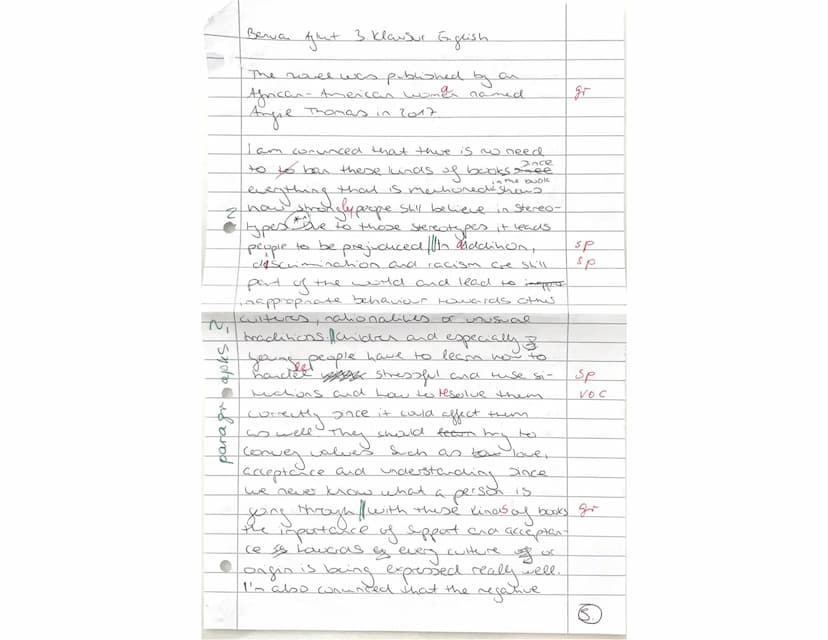 3. Klausur English
The novel was published by an
African-American woman named gr
Angie Thomas in 2017.
I am convinced that there is no need
to to ban these kinds of books since
everything that is mentioned in the book shows
how strongly people still believe in stereo-
types due to those stereotypes it leads
people to be prejudiced || In addition, sp
discrimination and racism are still sp
part of the world and lead to
inappropriate behaviour towards other
cultures, nationalities or unusual
traditions || Children and especially
young people have to learn how to
handle stressful and tense si- sp
tuations and how to resolve them voc
correctly since it could affect them
as well. They should learn try to
convey values such as love,
acceptance and understanding since
we never know what a person is
going through || with these kinds of books gr
the importance of support and acceptan-
ce towards every culture or
origin is being expressed really well.
I'm also convinced that the negative
5.